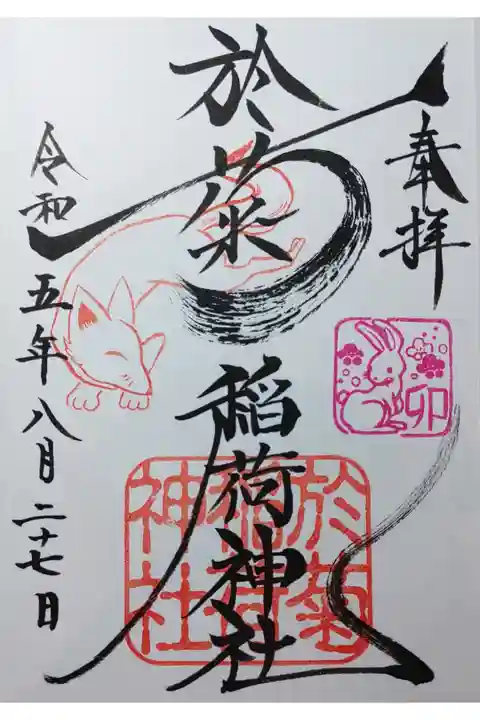 奉拝
卯
於菊
稲荷神社
於菊
稲荷
神社
令和五年八月二十七日